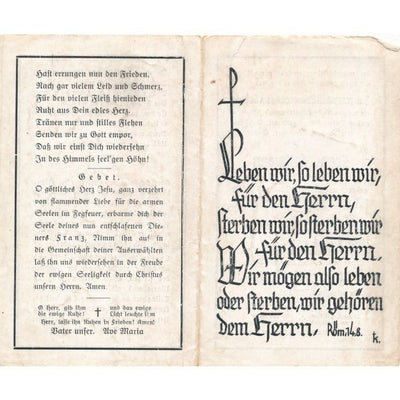 Hast errungen nun den Frieden.
Nach gar vielem Leid und Schmerz,
Für den vielen Fleiß hienieden
Ruht aus Dein edles Herz.
Tränen nur und stilles Flehen
Senden wir zu Gott empor,
Daß wir einst Dich wiedersehn
In des Himmels seel'gen Höhn!
Gebet.
O göttliches Herz Jesu, ganz verzehrt
von flammender Liebe für die armen
Seelen im Fegfeuer, erbarme dich der
Seele deines nun entschlafenen Die-
ners Franz, Nimm ihn auf in
die Gemeinschaft deiner Auserwählten
laß ihn uns wiedersehen in der Freude
der ewigen Seeligkeit durch Christus
unsern Herrn. Amen
O Herr, gib ihm und das ewige
die ewige Ruhe! Licht leuchte ihm
Herr, lasse ihn Ruhen in Frieden! Amen!
Vater unser. Ave Maria
Leben wir, so leben wir,
für den Herrn,
sterben wir, so sterben wir
für den Herrn.
Wir mögen also leben
oder sterben, wir gehören
dem Herrn. Röm. 14. 8.
k.